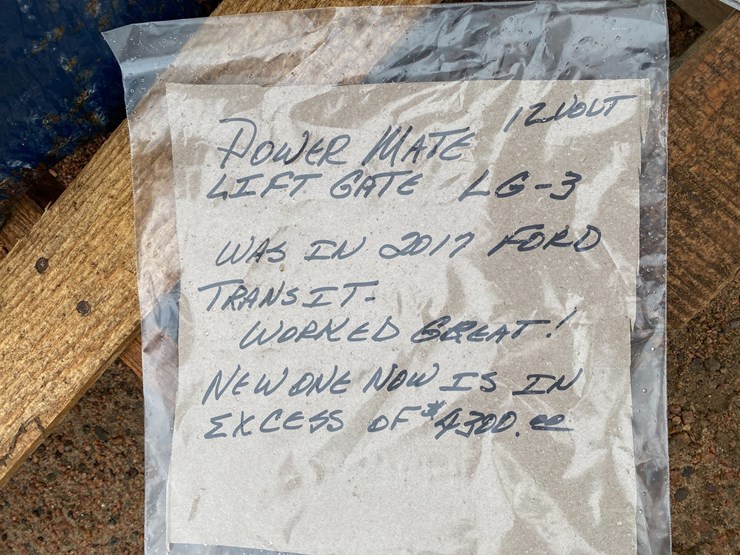 12 VOLT
POWER MATE
LIFT GATE LG-3
WAS IN 2017 FORD
TRANSIT-
WORKED GREAT!
NEW ONE NOW IS IN
EXCESS OF $4300.00